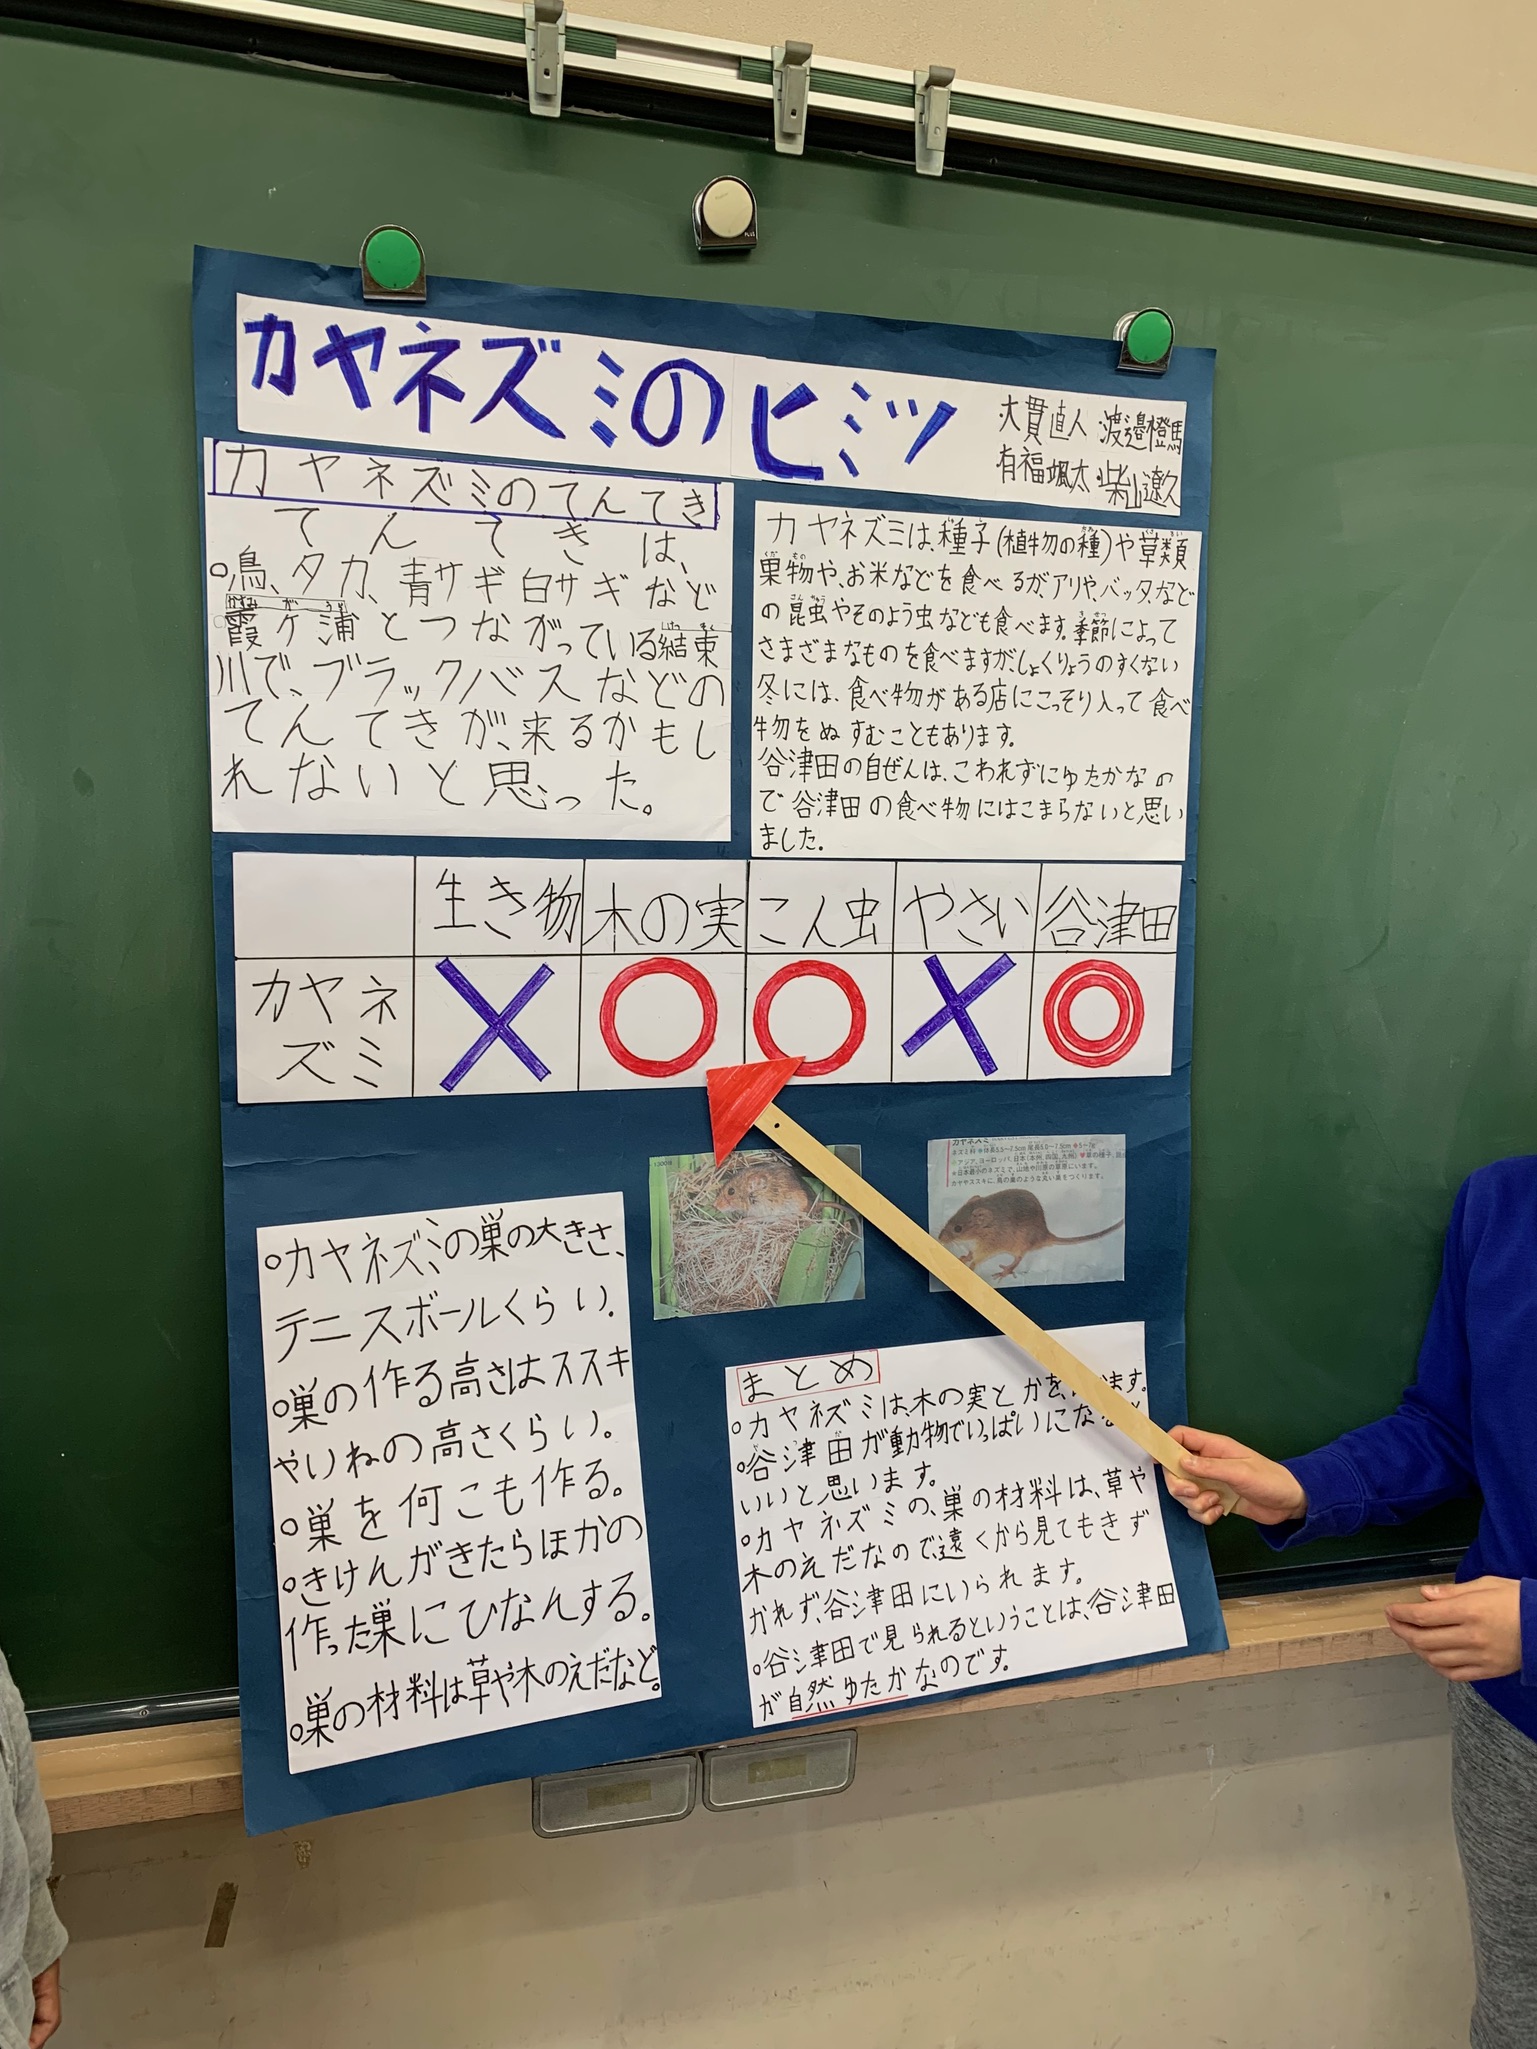 カヤネズミのヒミツ
大貫直人 渡邉橙馬
有福颯太 柴山遼久
カヤネズミのてんてき
てんてきは、
○鳥、タカ、青サギ白サギなど
霞ケ浦とつながっている結束
川で、ブラックバスなどの
てんてきが、来るかもし
れないと思った。
カヤネズミは、種子(植物の種)や草類
果物や、お米などを食べるが、アリや、バッタ、など
の昆虫やそのよう虫なども食べます。季節によって
さまざまなものを食べますが、しょくりょうのすくない
冬には、食べ物がある店にこっそり入って食べ
物をぬすむこともあります。
谷津田の自ぜんは、こわれずにゆたかなの
で谷津田の食べ物にはこまらないと思い
ました。
生き物 木の実 こん虫 やさい 谷津田
カヤネ
ズミ
カヤネズミ
○カヤネズミの巣の大きさ、
テニスボールくらい。
○巣の作る高さはススキ
やいねの高さくらい。
○巣を何こも作る。
○きけんがきたらほかの
作った巣にひなんする。
○巣の材料は草や木のえだなど。
まとめ
○カヤネズミは、木の実と かを、 ます。
○谷津田が動物でいっぱいになると
いいと思います。
○カヤネズミの、巣の材料は、草や
木のえだなので、遠くから見てもきず
かれず、谷津田にいられます。
○谷津田で見られるということは、谷津田
が自然ゆたかなのです。